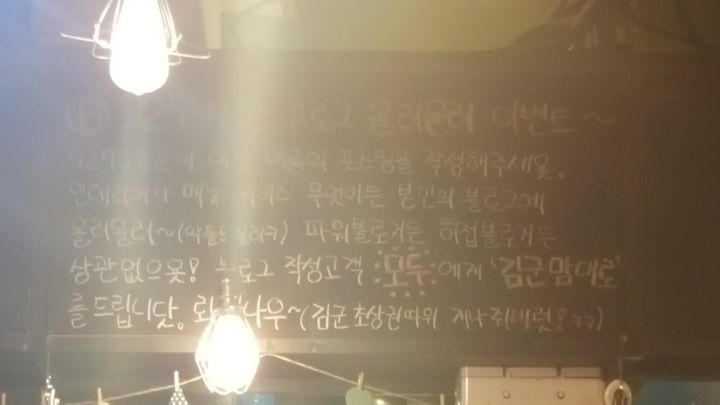 블로그 올리올리 이벤트~
포스팅을 작성해주세욧.
인테리어나 메뉴 서비스 무엇이든 본인의 블로그에
올리올리~(악플도 올려ㅋ) 파워블로거든 허접블로거든
상관없으욧! 블로그 작성고객 모두에게 '김군맘대로'
를 드립니닷. 나우~(김군 초상권따위 개나줘버렷!ㅋㅋ)